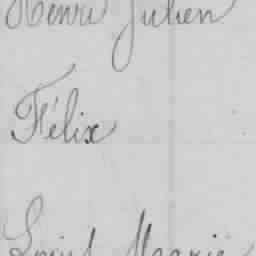 Henri Julien
Félix
Louis Marie